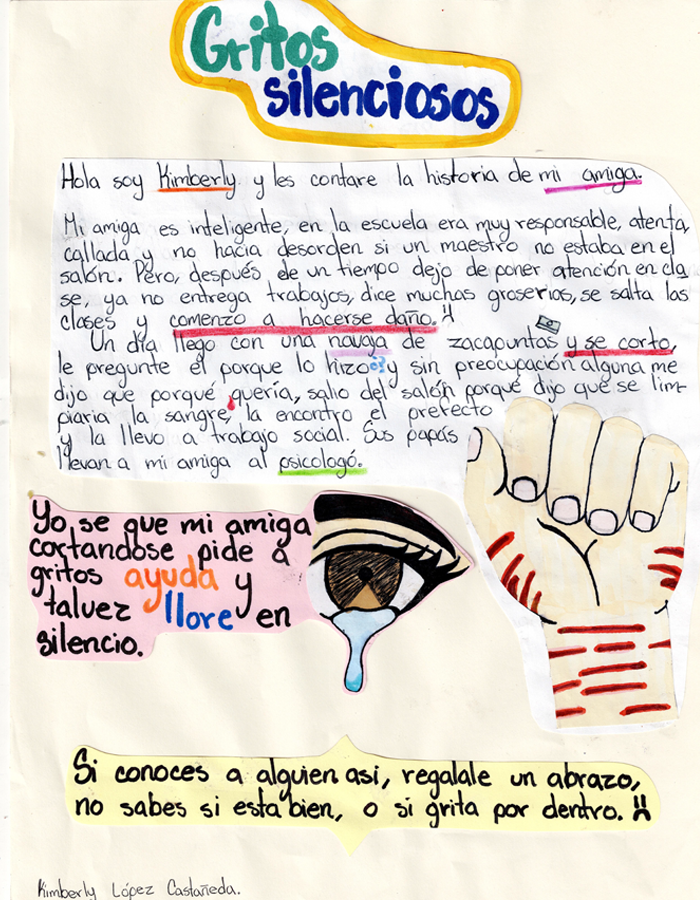 Gritos
silenciosos
Hola soy Kimberly y les contare la historia de mi amiga.
Mi amiga es inteligente, en la escuela era muy responsable, atenta,
callada y no hacia desorden si un maestro no estaba en el
salón. Pero, después de un tiempo dejo de poner atención en cla
se, ya no entrega trabajos, dice muchas groserias, se salta las
clases y comenzo a hacerse daño.
Un día llego con una navaja de zacapuntas y se corto,
le pregunte el porque lo hizo¿? y sin preocupación alguna me
dijo que porqué quería, salio del salón porqué dijo que se lim-
piaria la sangre, la encontro el prefecto
y la llevo a trabajo social. Sus papás
llevan a mi amiga al psicologó.
Yo se que mi amiga
cortandose pide a
gritos ayuda y
talvez llore en
silencio.
Si conoces a alguien asi, regalale un abrazo,
no sabes si esta bien, o si grita por dentro.
Kimberly López Castañeda.